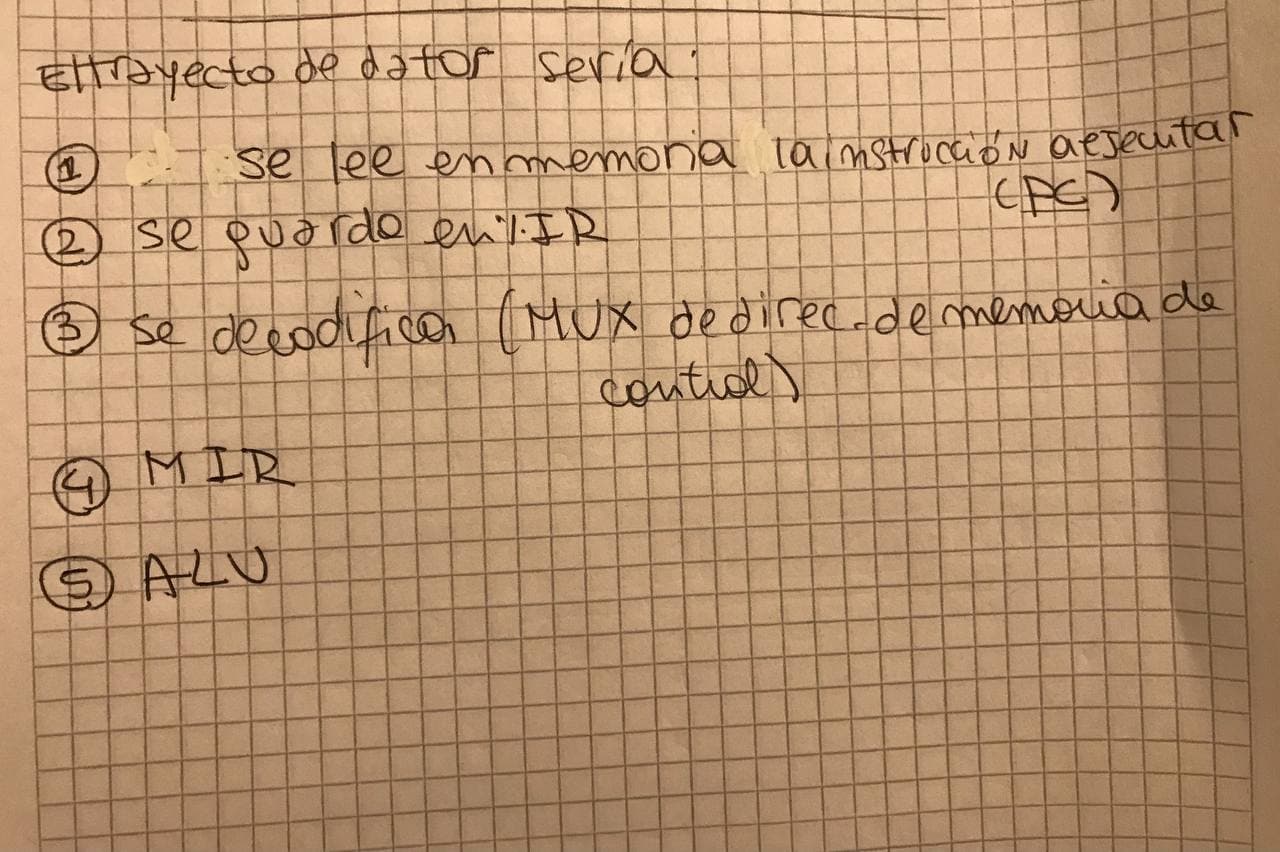 El trayecto de datos sería:
① se lee en memoria la instrucción a ejecutar
(PC)
② se guarda en %IR
③ se decodifica (MUX de direc. de memoria de
control)
④ MIR
⑤ ALU